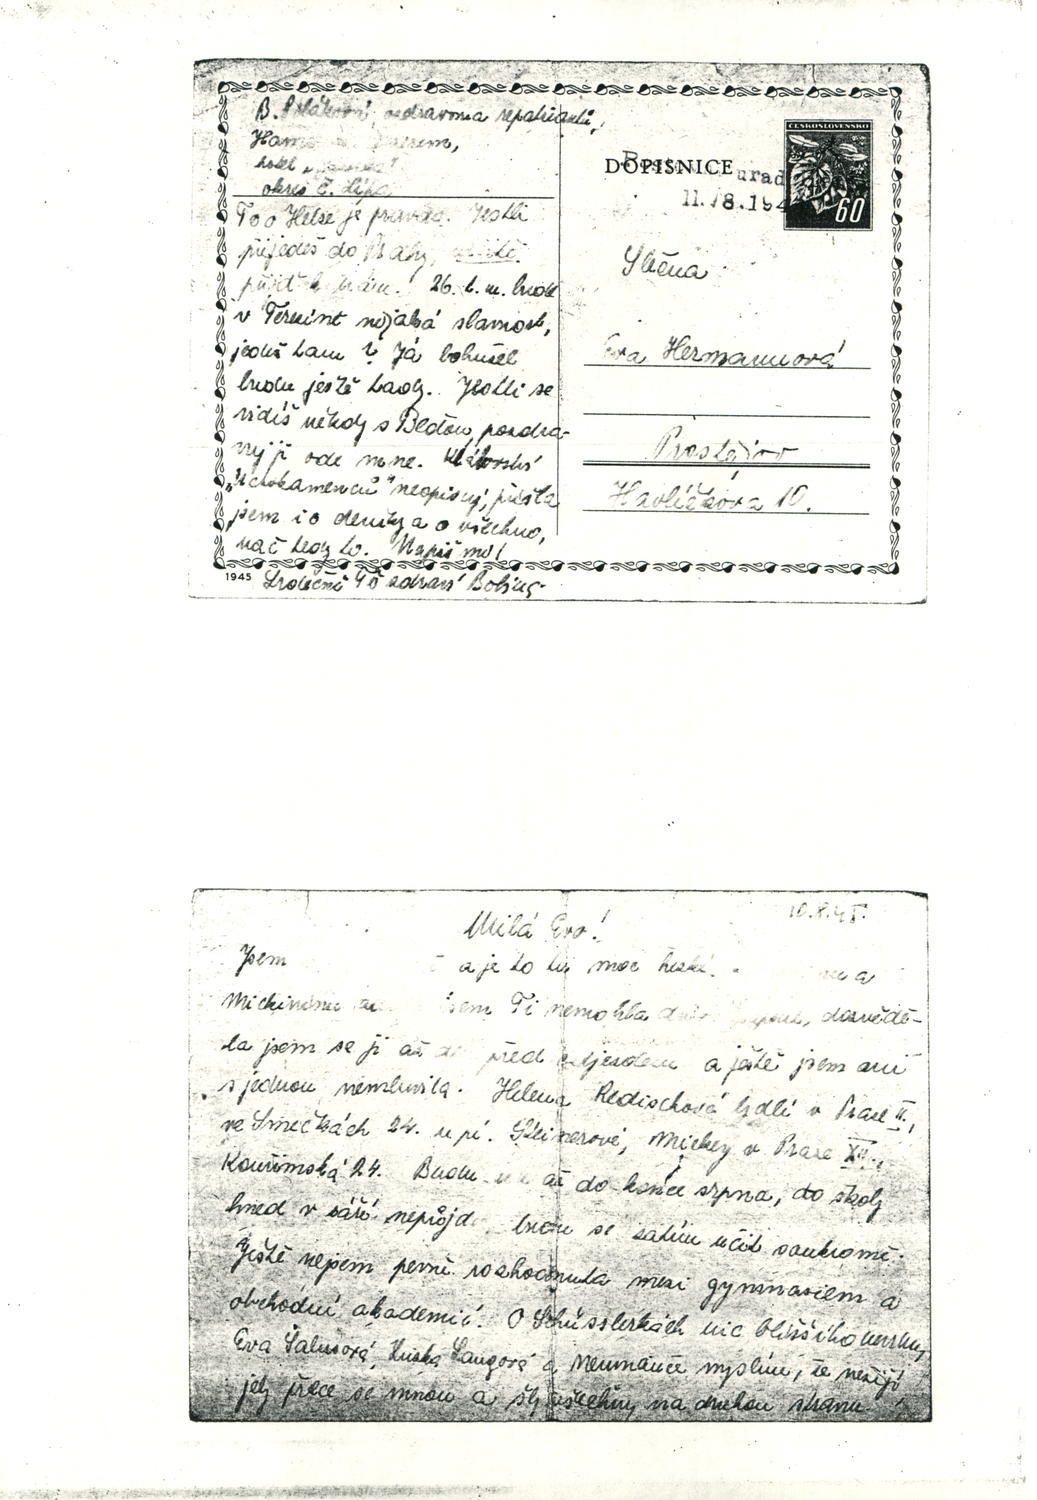 B. Poláková, ozdravovna repatriantů,
Hamr
hotel
okres Č. Lípa
To o Helze je pravda. Jestli
přijedeš do Prahy, určitě
přijď k nám! 26. t. m. bude
v Terezíně nějaká slavnost,
jedeš tam? Já bohužel
budu ještě tady. Jestli se
vidíš někdy s Bléďou, pozdra-
vuj ji ode mne. Klátovský
neopisuj, přišla
jsem i o deníky a o všechno,
nač tedy to. Napiš mi!
Srdečně Tě zdraví
1945
DOPISNICE
úřad
11./8.194
ČESKOSLOVENSKO
60
Slečna
Eva Hermannová
Prostějov
Havlíčkova 10.
10.8.45.
Milá Evo!
Jsem a je to tu moc hezké. a
jsem Ti nemohla dozvědě-
la jsem se ji až před odjezdem a ještě jsem ani
s jednou nemluvila. Helena Redischová bydlí v Praze II.,
ve Smečkách 24. u pí. Mickey v Praze XII.,
Kouřimská 24. Budu až do konce srpna, do školy
hned v září nepůjdu budu se zatím učit soukromě.
Ještě nejsem pevně rozhodnuta mezi gymnasiem a
obchodní akademií. O Schüsslerkách nic bližšího nevím,
Eva Salusová, Zuska Langová a Neumanče myslím, že nežijí
jely přece se mnou a šly všechny na druhou stranu.